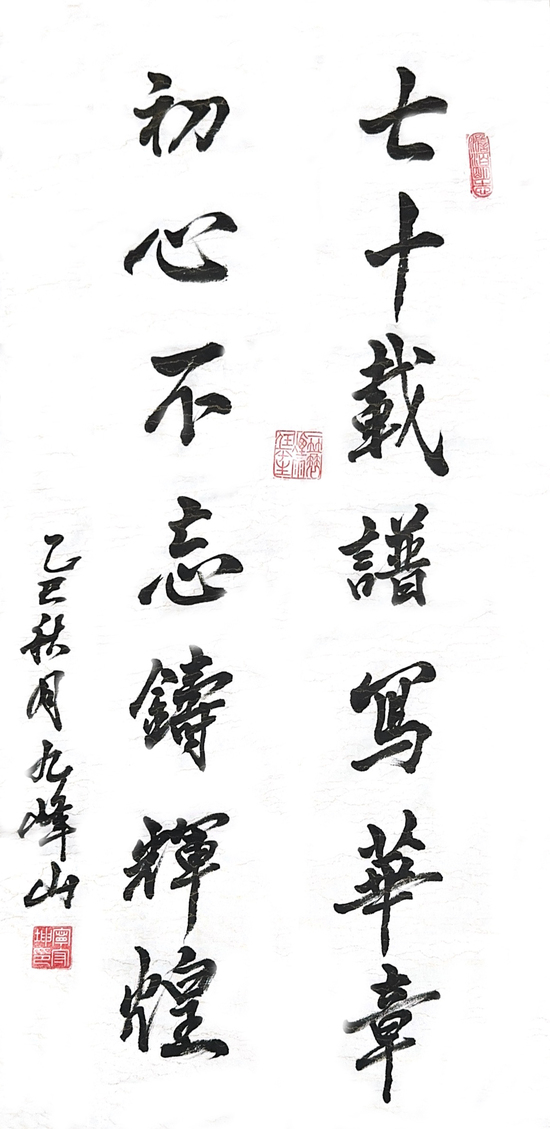 七十載譜寫華章
初心不忘鑄輝煌
乙巳秋月九峰山